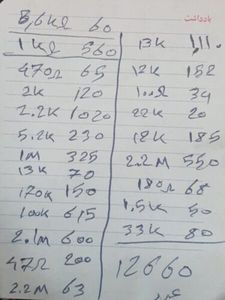 یادداشت
3,6KΩ 60
1KΩ 560
470Ω 65
2K 120
2.2K 1020
5.2K 230
1M 325
13K 70
120K 150
100K 615
2.1M 600
47Ω 200
2.2M 63
13K
12K 152
100Ω 34
22K 20
12K 185
2.2M 550
180Ω 68
1,5K 50
33K 80
12660
عدد